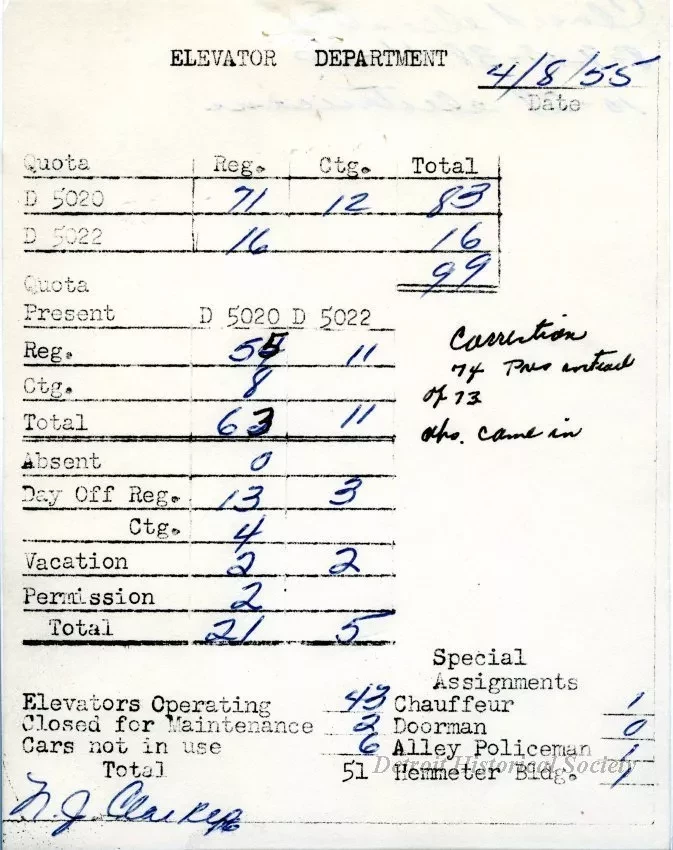 ELEVATOR DEPARTMENT
4/8/55
Date
Quota Reg. Ctg. Total
D 5020 71 12 83
D 5022 16 16
99
Quota
Present D 5020 D 5022
Reg. 55 11
Ctg. 8
Total 63 11
Absent 0
Day Off Reg. 13 3
Ctg. 4
Vacation 2 2
Permission 2
Total 21 5
Correction
74 Pres instead
of 73
abs. came in
Special
Assignments
Elevators Operating 43 Chauffeur 1
Closed for Maintenance 2 Doorman 0
Cars not in use 6 Alley Policeman 1
Total 51 Hemmeter Bldg. 1
Detroit Historical Society
N. J. Clarke